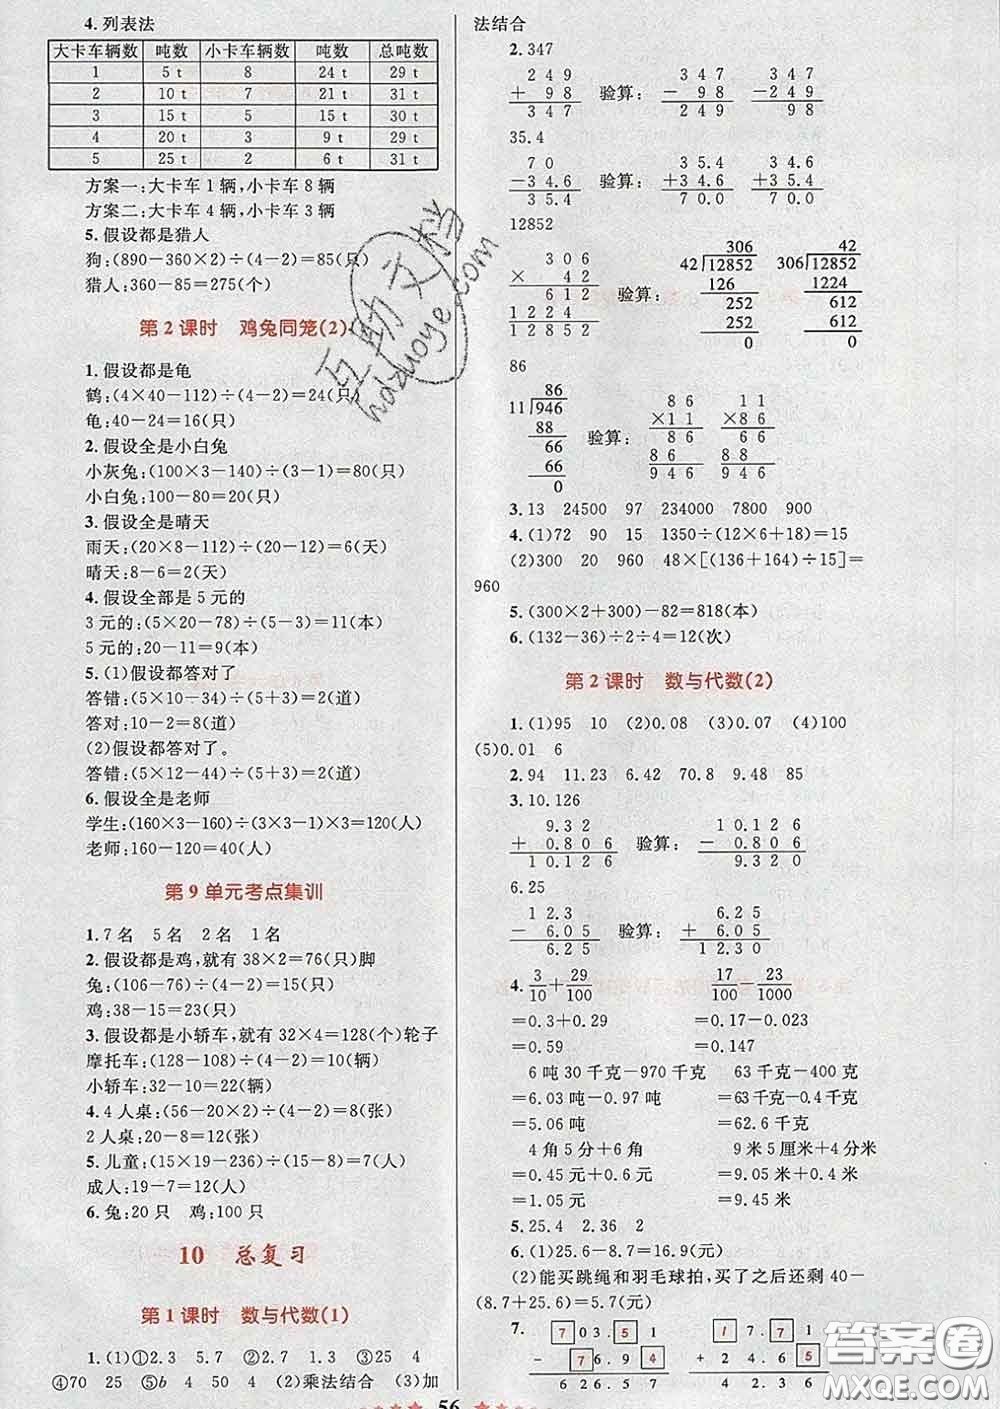 4.列表法
大卡车辆数 吨数 小卡车辆数 吨数 总吨数
1 5 t 8 24 t 29 t
2 10 t 7 21 t 31 t
3 15 t 5 15 t 30 t
4 20 t 3 9 t 29 t
5 25 t 2 6 t 31 t
方案一:大卡车1辆,小卡车8辆
方案二:大卡车4辆,小卡车3辆
5.假设都是猎人
狗:(890-360×2)÷(4-2)=85(只)
猎人:360-85=275(个)
第2课时 鸡兔同笼(2)
1.假设都是龟
鹤:(4×40-112)÷(4-2)=24(只)
龟:40-24=16(只)
2.假设全是小白兔
小灰兔:(100×3-140)÷(3-1)=80(只)
小白兔:100-80=20(只)
3.假设全是晴天
雨天:(20×8-112)÷(20-12)=6(天)
晴天:8-6=2(天)
4.假设全部是5元的
3元的:(5×20-78)÷(5-3)=11(本)
5元的:20-11=9(本)
5.(1)假设都答对了
答错:(5×10-34)÷(5+3)=2(道)
答对:10-2=8(道)
(2)假设都答对了。
答错:(5×12-44)÷(5+3)=2(道)
6.假设全是老师
学生:(160×3-160)÷(3-1÷3)=120(人)
老师:160-120=40(人)
第9单元考点集训
1.7名 5名 2名 1名
2.假设都是鸡,就有38×2=76(只)脚
兔:(106-76)÷(4-2)=15(只)
鸡:38-15=23(只)
3.假设都是小轿车,就有32×4=128(个)轮子
摩托车:(128-108)÷(4-2)=10(辆)
小轿车:32-10=22(辆)
4.4人桌:(56-20×2)÷(4-2)=8(张)
2人桌:20-8=12(张)
5.儿童:(15×19-236)÷(15-8)=7(人)
成人:19-7=12(人)
6.兔:20只 鸡:100只
10 总复习
第1课时 数与代数(1)
1.(1)①2.3 5.7 ②2.7 1.3 ③25 4
④70 25 ⑤b 4 50 4 (2)乘法结合 (3)加
法结合
2.347
2 4 9 3 4 7 3 4 7
+ 9 8 验算: - 9 8 -2 4 9
3 4 7 2 4 9 9 8
35.4
7 0 3 5.4 3 4.6
-3 4.6 验算: +3 4.6 +3 5.4
3 5.4 7 0.0 7 0.0
12852
3 0 6 306 42
× 4 2 42 12852 306 12852
6 1 2 验算: 126 1224
1 2 2 4 252 612
1 2 8 5 2 252 612
0 0
86
86 8 6 1 1
11 946 ×1 1 ×8 6
88 验算: 8 6 6 6
66 8 6 8 8
66 9 4 6 9 4 6
0
3.13 24500 97 234000 7800 900
4.(1)72 90 15 1350÷(12×6+18)=15
(2)300 20 960 48×[(136+164)÷15]=
960
5.(300×2+300)-82=818(本)
6.(132-36)÷2÷4=12(次)
第2课时 数与代数(2)
1.(1)95 10 (2)0.08 (3)0.07 (4)100
(5)0.01 6
2.94 11.23 6.42 70.8 9.48 85
3.10.126
9.3 2 1 0.1 2 6
+ 0.8 0 6 验算: - 0.8 0 6
1 0.1 2 6 9.3 2 0
6.25
1 2.3 6.2 5
- 6.0 5 验算: + 6.0 5
6.2 5 1 2.3 0
4. 3/10+29/100 17/100-23/1000
=0.3+0.29 =0.17-0.023
=0.59 =0.147
6吨30千克-970千克 63千克-400克
=6.03吨-0.97吨 =63千克-0.4千克
=5.06吨 =62.6千克
4角5分+6角 9米5厘米+4分米
=0.45元+0.6元 =9.05米+0.4米
=1.05元 =9.45米
5.25.4 2.36 2
6.(1)25.6-8.7=16.9(元)
(2)能买跳绳和羽毛球拍,买了之后还剩40-
(8.7+25.6)=5.7(元)
7. 7 0 3. 5 1 1 7. 7 1
- 7 6. 9 4 + 2 4. 6 5
6 2 6. 5 7 4 2. 3 6
56
互助文档
hdzuoye.com
答案圈
MXQE.COM